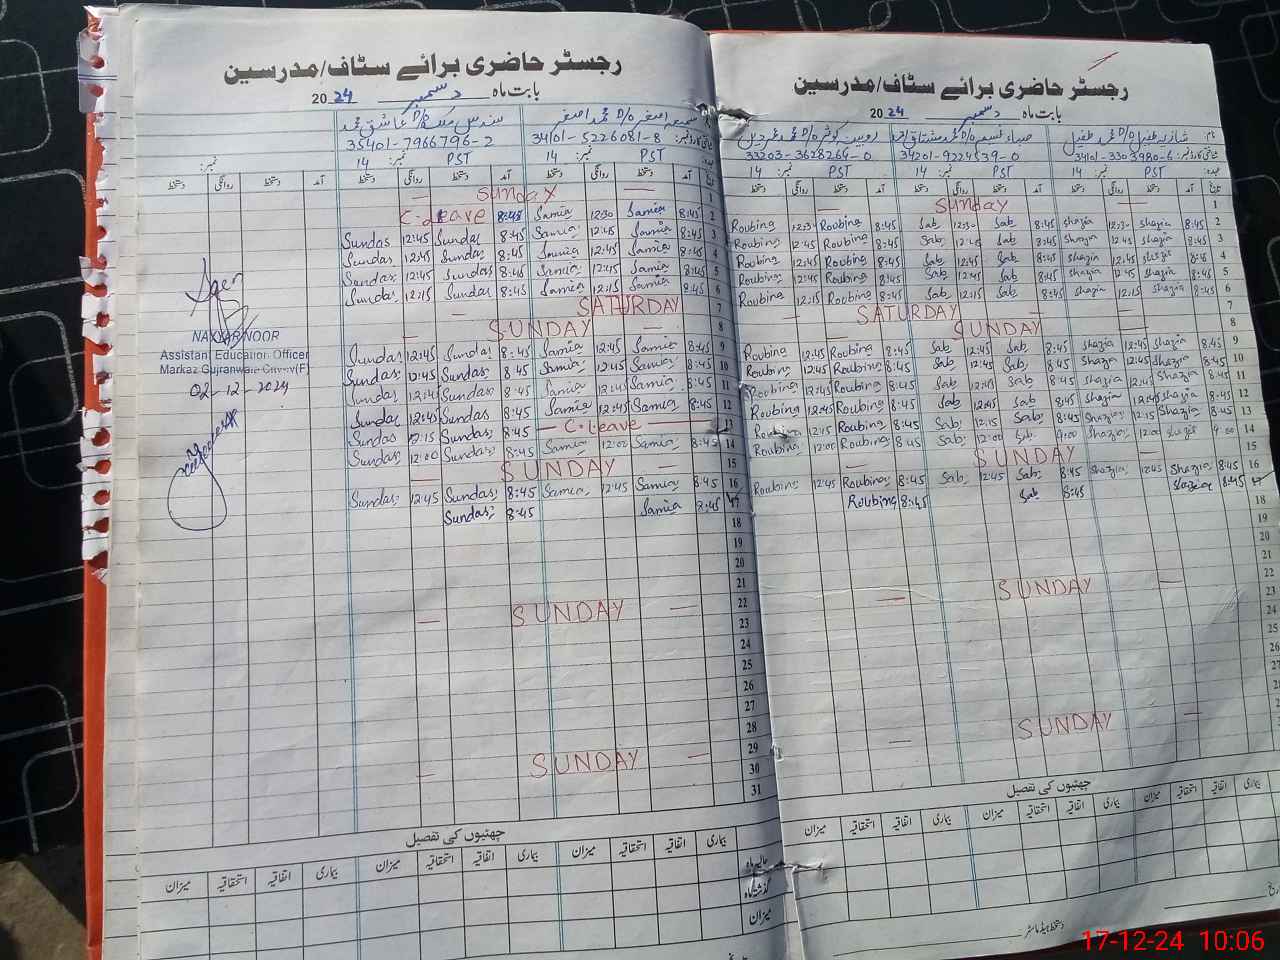 رجسٹر حاضری برائے سٹاف/مدرسین
بابت ماہ دسمبر 2024
سمیعہ اصغر D/o محمد اصغر سندس ملکہ D/o عاشق محمد
شناختی کارڈ نمبر: 34101-5226081-8 35401-7966796-2
PST نمبر: 14 PST نمبر: 14 نمبر:
تاریخ آمد دستخط روانگی دستخط آمد دستخط روانگی دستخط آمد دستخط روانگی دستخط
1 — Sunday —
2 8:45 Samia 12:30 Samia 8:45 C-leave
3 8:45 Samia 12:45 Samia 8:45 Sundas 12:45 Sundas
4 8:45 Samia 12:45 Samia 8:45 Sundas 12:45 Sundas
5 8:45 Samia 12:45 Samia 8:45 Sundas 12:45 Sundas
6 8:45 Samia 12:15 Samia 8:45 Sundas 12:15 Sundas
7 SATURDAY —
8 — SUNDAY —
9 8:45 Samia 12:45 Samia 8:45 Sundas 12:45 Sundas
10 8:45 Samia 12:45 Samia 8:45 Sundas 12:45 Sundas
11 8:45 Samia 12:45 Samia 8:45 Sundas 12:45 Sundas
12 8:45 Samia 12:45 Samia 8:45 Sundas 12:45 Sundas
13 — C-leave — 8:45 Sundas 12:15 Sundas
14 8:45 Samia 12:00 Samia 8:45 Sundas 12:00 Sundas
15 — SUNDAY —
16 8:45 Samia 12:45 Samia 8:45 Sundas 12:45 Sundas
17 8:45 Samia 8:45 Sundas
18
19
20
21
22 — SUNDAY —
23
24
25
26
27
28
29 — SUNDAY —
30
31
Assistant Education Officer
02-12-2024
چھٹیوں کی تفصیل
بیماری اتفاقیہ استحقاقیہ میزان بیماری اتفاقیہ استحقاقیہ میزان بیماری اتفاقیہ استحقاقیہ میزان
حالیہ ماہ
گذشتہ ماہ
میزان
رجسٹر حاضری برائے سٹاف/مدرسین
بابت ماہ دسمبر 2024
نام: شازیہ طفیل D/o محمد طفیل D/o محمد مشتاق روبینہ کوثر D/o محمد
شناختی کارڈ نمبر: 34101-3303980-6 34201-9224539-0 33203-3628264-0
عہدہ: PST 14 نمبر: PST 14 نمبر: PST 14
تاریخ آمد دستخط روانگی دستخط آمد دستخط روانگی دستخط آمد دستخط روانگی دستخط
1 — Sunday —
2 8:45 Shazia 12:30 Shazia 8:45 Sab 12:30 Sab 8:45 Roubina 12:30 Roubina
3 8:45 Shazia 12:45 Shazia 8:45 Sab 12:45 Sab 8:45 Roubina 12:45 Roubina
4 8:45 Shazia 12:45 Shazia 8:45 Sab 12:45 Sab 8:45 Roubina 12:45 Roubina
5 8:45 Shazia 12:45 Shazia 8:45 Sab 12:45 Sab 8:45 Roubina 12:45 Roubina
6 8:45 Shazia 12:15 Shazia 8:45 Sab 12:15 Sab 8:45 Roubina 12:15 Roubina
7 — SATURDAY —
8 — SUNDAY
9 8:45 Shazia 12:45 Shazia 8:45 Sab 12:45 Sab 8:45 Roubina 12:45 Roubina
10 8:45 Shazia 12:45 Shazia 8:45 Sab 12:45 Sab 8:45 Roubina 12:45 Roubina
11 8:45 Shazia 12:45 Shazia 8:45 Sab 12:45 Sab 8:45 Roubina 12:45 Roubina
12 8:45 Shazia 12:45 Shazia 8:45 Sab 12:45 Sab 8:45 Roubina 12:45 Roubina
13 8:45 Shazia 12:15 Shazia 8:45 Sab 12:15 Sab 8:45 Roubina 12:15 Roubina
14 9:00 Shazia 12:00 Shazia 9:00 Sab 12:00 Sab 8:45 Roubina 12:00 Roubina
15 — SUNDAY —
16 8:45 Shazia 12:45 Shazia 8:45 Sab 12:45 Sab 8:45 Roubina 12:45 Roubina
17 8:45 Shazia 8:45 Sab 8:45 Roubina
18
19
20
21
22 — SUNDAY —
23
24
25
26
27
28
— SUNDAY —
چھٹیوں کی تفصیل
بیماری اتفاقیہ استحقاقیہ میزان بیماری اتفاقیہ استحقاقیہ میزان بیماری اتفاقیہ استحقاقیہ میزان
دستخط ہیڈ ماسٹر
17-12-24 10:06